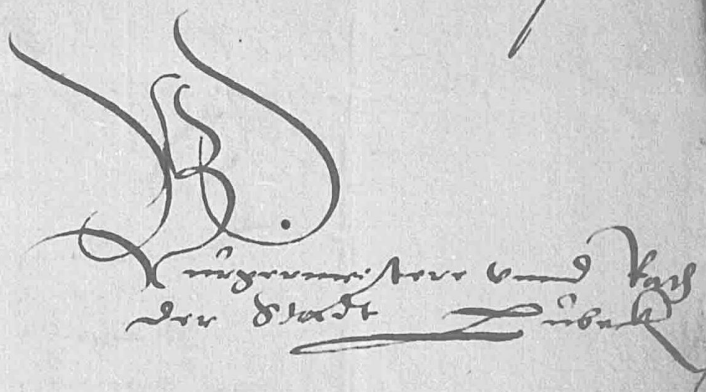 Bürgermeistere vnnd Rath
der Stadt Lübeck